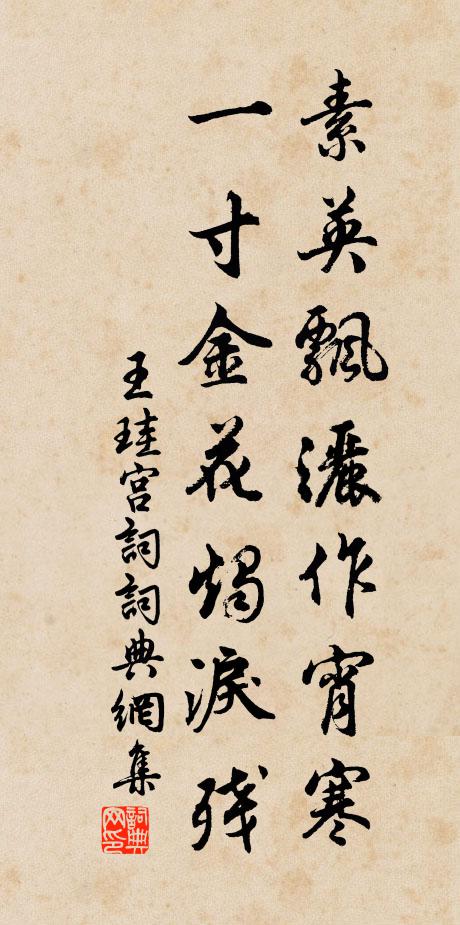 素英飄灑作宵寒
一寸金花燭淚殘
王珪宮詞詞典網集
詞典網印